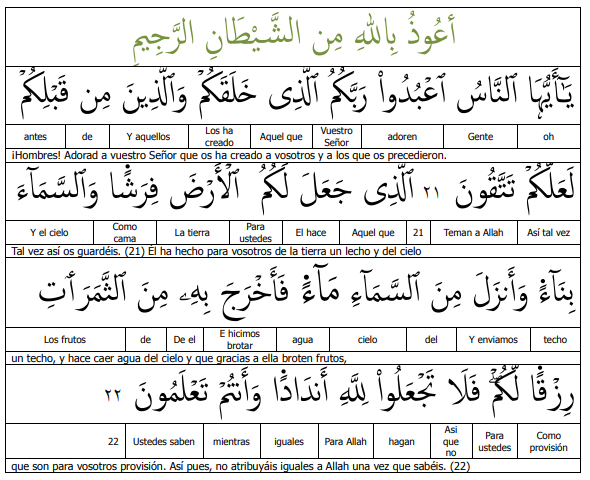 أعُوذُ بِاللهِ مِن الشَّيْطَانِ الرَّجِيمِ
يَـٰٓأَيُّهَا ٱلنَّاسُ ٱعْبُدُوا۟ رَبَّكُمُ ٱلَّذِى خَلَقَكُمْ وَٱلَّذِينَ مِن قَبْلِكُمْ
antes de Y aquellos Los ha creado Aquel que Vuestro Señor adoren Gente oh
¡Hombres! Adorad a vuestro Señor que os ha creado a vosotros y a los que os precedieron.
لَعَلَّكُمْ تَتَّقُونَ ٢١ ٱلَّذِى جَعَلَ لَكُمُ ٱلْأَرْضَ فِرَٰشًا وَٱلسَّمَآءَ
Y el cielo Como cama La tierra Para ustedes El hace Aquel que 21 Teman a Allah Así tal vez
Tal vez así os guardéis. (21) Él ha hecho para vosotros de la tierra un lecho y del cielo
بِنَآءً وَأَنزَلَ مِنَ ٱلسَّمَآءِ مَآءً فَأَخْرَجَ بِهِۦ مِنَ ٱلثَّمَرَٰتِ
Los frutos de De el E hicimos brotar agua cielo del Y enviamos techo
un techo, y hace caer agua del cielo y que gracias a ella broten frutos,
رِزْقًا لَّكُمْ ۖ فَلَا تَجْعَلُوا۟ لِلَّهِ أَندَادًا وَأَنتُمْ تَعْلَمُونَ ٢٢
22 Ustedes saben mientras iguales Para Allah hagan Asi que no Para ustedes Como provisión
que son para vosotros provisión. Así pues, no atribuyáis iguales a Allah una vez que sabéis. (22)